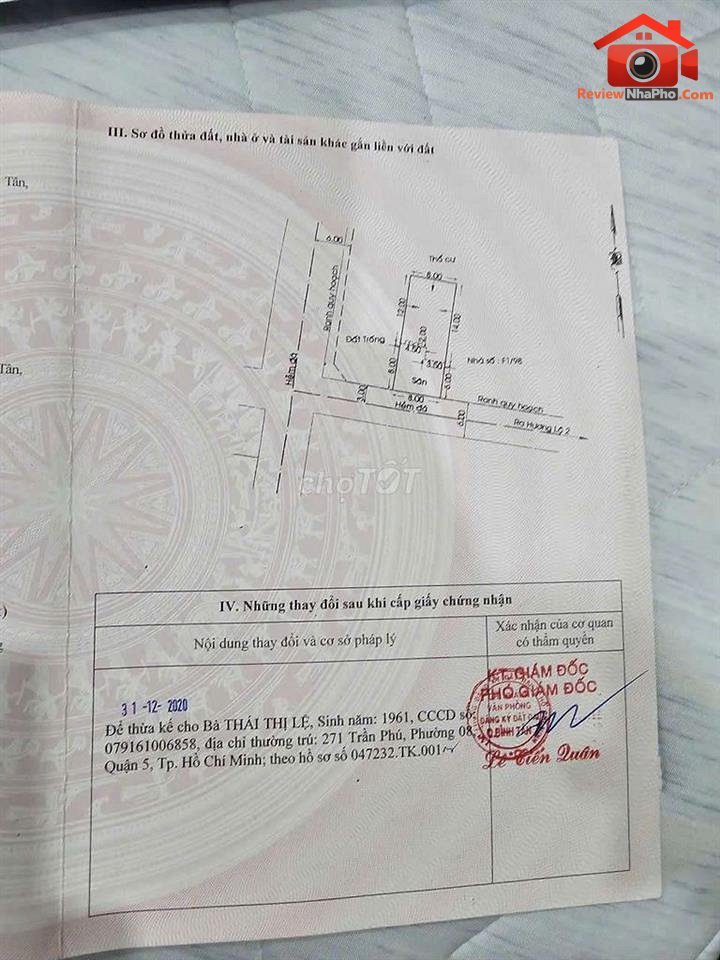 ReviewNhaPho.Com
III. Sơ đồ thửa đất, nhà ở và tài sản khác gắn liền với đất
Tân,
Tân,
6.00
Ranh quy hoạch
Hẻm đá
Thổ cư
8.00
12.00
14.00
Đất Trống
4.50
3.50
Nhà số : F1/9B
8.00
Sân
6.00
3.00
8.00
Hẻm đá
Ranh quy hoạch
6.00
Ra Hương Lộ 2
chợTỐT
IV. Những thay đổi sau khi cấp giấy chứng nhận
Nội dung thay đổi và cơ sở pháp lý
Xác nhận của cơ quan
có thẩm quyền
31-12-2020
Để thừa kế cho Bà THÁI THỊ LỆ, Sinh năm: 1961, CCCD số:
079161006858, địa chỉ thường trú: 271 Trần Phú, Phường 08,
Quận 5, Tp. Hồ Chí Minh; theo hồ sơ số 047232.TK.001
KT.GIÁM ĐỐC
PHÓ GIÁM ĐỐC
VĂN PHÒNG
ĐĂNG KÝ ĐẤT ĐAI
Q.BÌNH TÂN
Lê Tiến Quân